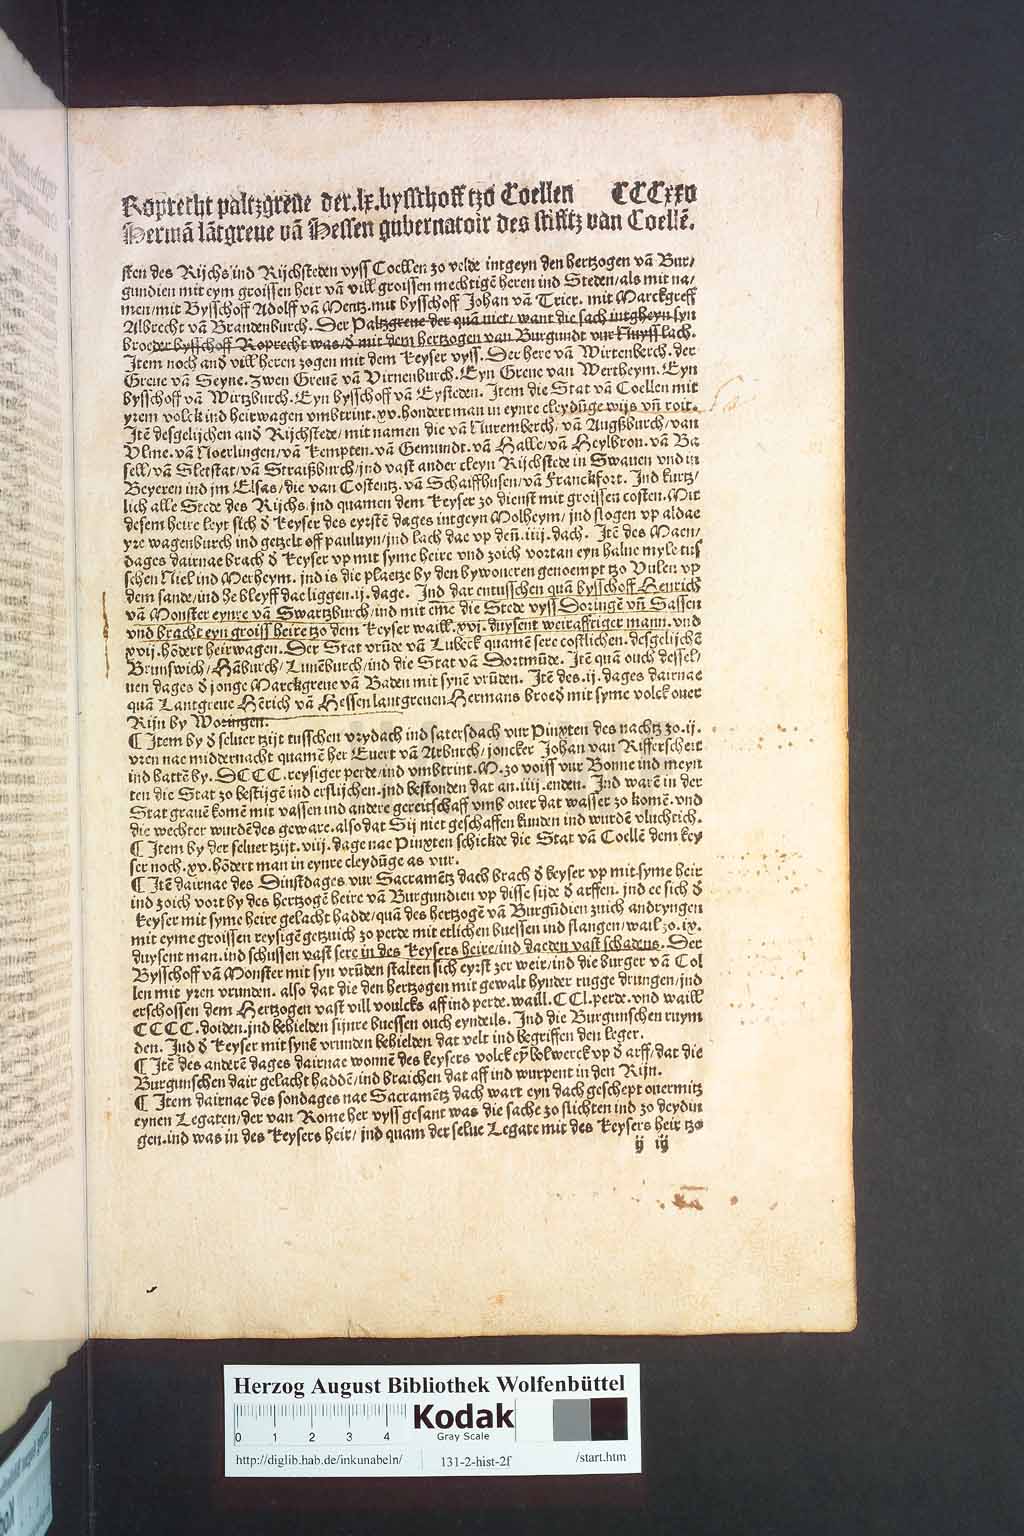 Roprecht paltzgreue der.lx.bysschoff tzo Coellen CCCxxv
Hermā lātgreue vā Hessen gubernatoir des stifftz van Coellē.
sten des Rijchs ind Rijchsteden vyss Coellen zo velde intgeyn den hertzogen vā Bur/
gundien mit eym groissen heir vā vill groissen mechtigē heren ind Steden/als mit na/
men/mit Bysschoff Adolff vā Mentz.mit bysschoff Johan vā Trier. mit Marckgreff
Albrecht vā Brandenburch. Der Paltzgreue der quā niet/ want die sach intgheyn syn
broeder bysschoff Roprecht was/ď mit dem hertzogen van Burgundt vur Nuyss lach.
Item noch and vill heren zogen mit dem Keyser vyss. Der here vā Wirtenberch. der
Greue vā Seyne. Zwen Greuē vā Virnenburch. Eyn Greue van Wertheym. Eyn
bysschoff vā Wirtzburch. Eyn bysschoff vā Eysteden. Item die Stat vā Coellen mit
yrem volck ind heirwagen vmbtrint.xv.hondert man in eynre cleydūge wijs vn̄ roit.
Itē desgelijchen and Rijchstede/ mit namen die vā Nuremberch/ vā Augßburch/ van
Vlme. vā Noerlingen/ vā Kempten. vā Gemundt. vā Halle/ vā Heylbron. vā Ba
sell/ vā Sletstat/ vā Straißburch/ jnd vast ander cleyn Rijchstede in Swauen vnd in
Beyeren ind jm Elsas/ die van Costentz. vā Schaiffhusen/ vā Franckfort. Ind kurtz/
lich alle Stede des Rijchs. jnd quamen dem Keyser zo dienst mit groissen costen. Mit
desem heire leyt sich ď Keyser des eyrstē dages intgeyn Molheym/ jnd slogen vp aldae
yre wagenburch ind getzelt off pauluyn/jnd lach dae vp den̄.iiij.dach. Itē des Maen/
dages dairnae brach ď Keyser vp mit syme heire vnd zoich vortan eyn halue myle tus
schen Niel ind Merheym. jnd is die plaetze by den bywoneren genoempt tzo Vulen vp
dem sande/ind he bleyff dae liggen.ij.dage. Ind dar entusschen quā bysschoff Henrich
vā Monster eynre vā Swartzburch/ind mit eme die Stede vyss Doringē vn̄ Sassen
vnd bracht eyn groiss heire tzo dem Keyser waill.xvi.duysent weirafftiger mann.vnd
xvij.hōdert heirwagen. Der Stat vrūde vā Lubeck quamē sere costlichen.desgelijchē
Brunswich/Hāburch/Lunēburch/ind die Stat vā Dortmūde. Itē quā ouch dessel/
uen dages ď jonge Marckgreue vā Baden mit synē vrūden. Itē des.ij.dages dairnae
quā Lantgreue Hērich vā Hessen lantgreuen Hermans broed mit syme volck ouer
Rijn by Woringen.
¶ Item by ď seluer tzijt tusschen vrydach ind satersdach vur Pinxten des nachtz zo.ij.
vren nae middernacht quamē her Euert vā Arburch/ joncker Johan van Rifferscheit
ind hattē by. DCCCC.reysiger perde/ind vmbtrint.M.zo voiss vur Bonne ind meyn
ten die Stat zo bestijgē ind erslijchen.jnd bestonden dat an.iiij.enden. Ind warē in der
Stat grauē komē mit vassen ind andere gereitschaff vmb ouer dat wasser zo komē.vnd
die wechter wurdē des geware.also dat Sij niet geschaffen kunden ind wurdē vluchtich.
¶ Item by der seluer tzijt.viij.dage nae Pinxten schickde die Stat vā Coellē dem key
ser noch.xv.hōdert man in eynre cleydūge as vur.
¶ Itē dairnae des Dinstdages vur Sacramētz dach brach ď keyser vp mit syme heir
ind zoich vort by des hertzogē heire vā Burgundien vp disse sijde ď arffen. jnd ee sich ď
keyser mit syme heire gelacht hadde/quā des hertzogē vā Burgūdien zuich andryngen
mit eyme groissen reysigē getzuich zo perde mit etlichen buessen ind slangen/wail zo.ix.
duysent man.ind schussen vast sere in des Keysers heire/ind daeden vast schadens. Der
Bysschoff vā Monster mit syn vrūden stalten sich eyrst zer weir/ind die burger vā Col
len mit yren vrunden. also dat die den hertzogen mit gewalt hynder rugge drungen/jnd
erschossen dem Hertzogen vast vill voulcks aff ind perde.waill.CCl.perde.vnd waill
CCCC.doiden.jnd behielden sijnre buessen ouch eyndeils. Ind die Burgunschen ruym
den. Ind ď Keyser mit synē vrunden behielden dat velt ind begriffen den leger.
¶ Itē des anderē dages dairnae wonnē des keysers volck eȳ bolwerck vp ď arff/dat die
Burgunschen dair gelacht haddē/ind braichen dat aff ind wurpent in den Rijn.
¶ Item dairnae des sondages nae Sacramētz dach wart eyn dach geschept ouermitz
eynen Legaten/der van Rome her vyss gesant was die sache zo slichten ind zo deydin
gen.ind was in des Keysers heir/ jnd quam der selue Legate mit des Keysers heir tzo
ÿ iÿ
Herzog August Bibliothek Wolfenbüttel
0 1 2 3 4
Kodak
Gray Scale
http://diglib.hab.de/inkunabeln/ 131-2-hist-2f /start.htm